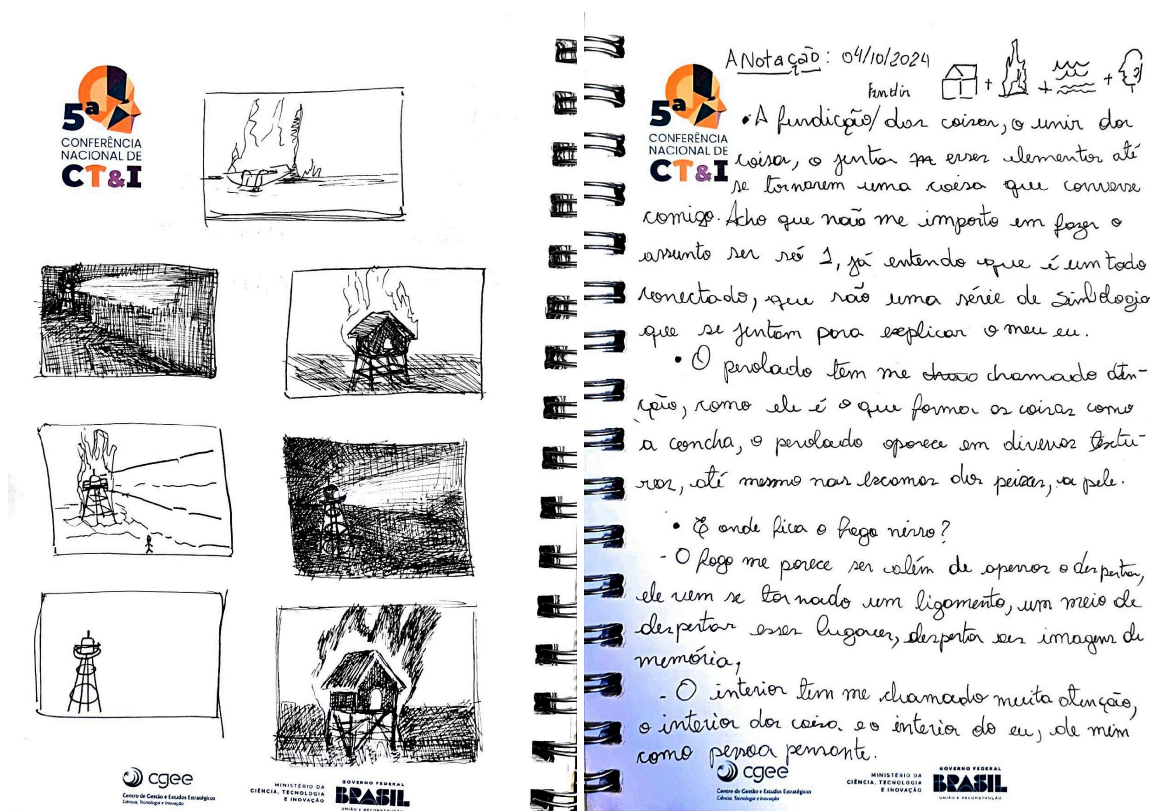 5ª
CONFERÊNCIA
NACIONAL DE
CT&I
cgee
Centro de Gestão e Estudos Estratégicos
Ciência, Tecnologia e Inovação
MINISTÉRIO DA
CIÊNCIA, TECNOLOGIA
E INOVAÇÃO
GOVERNO FEDERAL
BRASIL
UNIÃO E RECONSTRUÇÃO
5ª
CONFERÊNCIA
NACIONAL DE
CT&I
ANotação: 04/10/2024
+ + +
• A fundição/ das coisas, o unir das
coisas, o juntar esses elementos até
se tornarem uma coisa que converse
comigo. Acho que não me importo em fazer o
assunto ser só 1, já entendo que é um todo
conectado, que são uma série de simbologia
que se juntam para explicar o meu eu.
• O perolado tem me chamado aten-
ção, como ele é o que forma as coisas como
a concha, o perolado aparece em diversas textu-
ras, até mesmo nas escamas dos peixes, a pele.
• E onde fica o fogo nisso?
- O fogo me parece ser além de apenas o despertar,
ele vem se tornado um ligamento, um meio de
despertar esses lugares, despertar as imagens de
memória,
- O interior tem me chamado muita atenção,
o interior da casa e o interior do eu, de mim
como pessoa pensante.
cgee
Centro de Gestão e Estudos Estratégicos
Ciência, Tecnologia e Inovação
MINISTÉRIO DA
CIÊNCIA, TECNOLOGIA
E INOVAÇÃO
GOVERNO FEDERAL
BRASIL
UNIÃO E RECONSTRUÇÃO